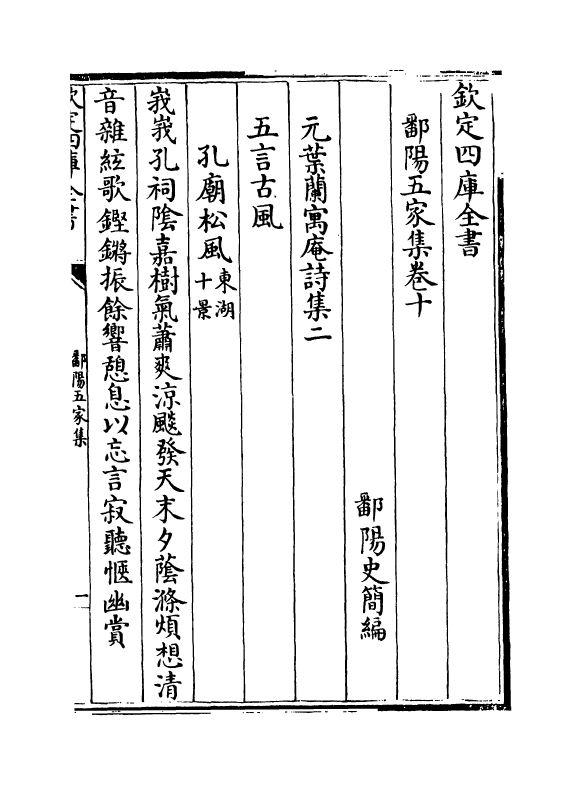 欽定四庫全書
鄱陽五家集卷十
鄱陽史簡編
元葉蘭寓庵詩集二
五言古風
孔廟松風東湖十景
峩峩孔祠隂嘉樹氣蕭爽涼颷發天末夕蔭滌煩想清
音雜絃歌鏗鏘振餘響憩息以忘言寂聽愜幽賞
欽定四庫全書
鄱陽五家集
一